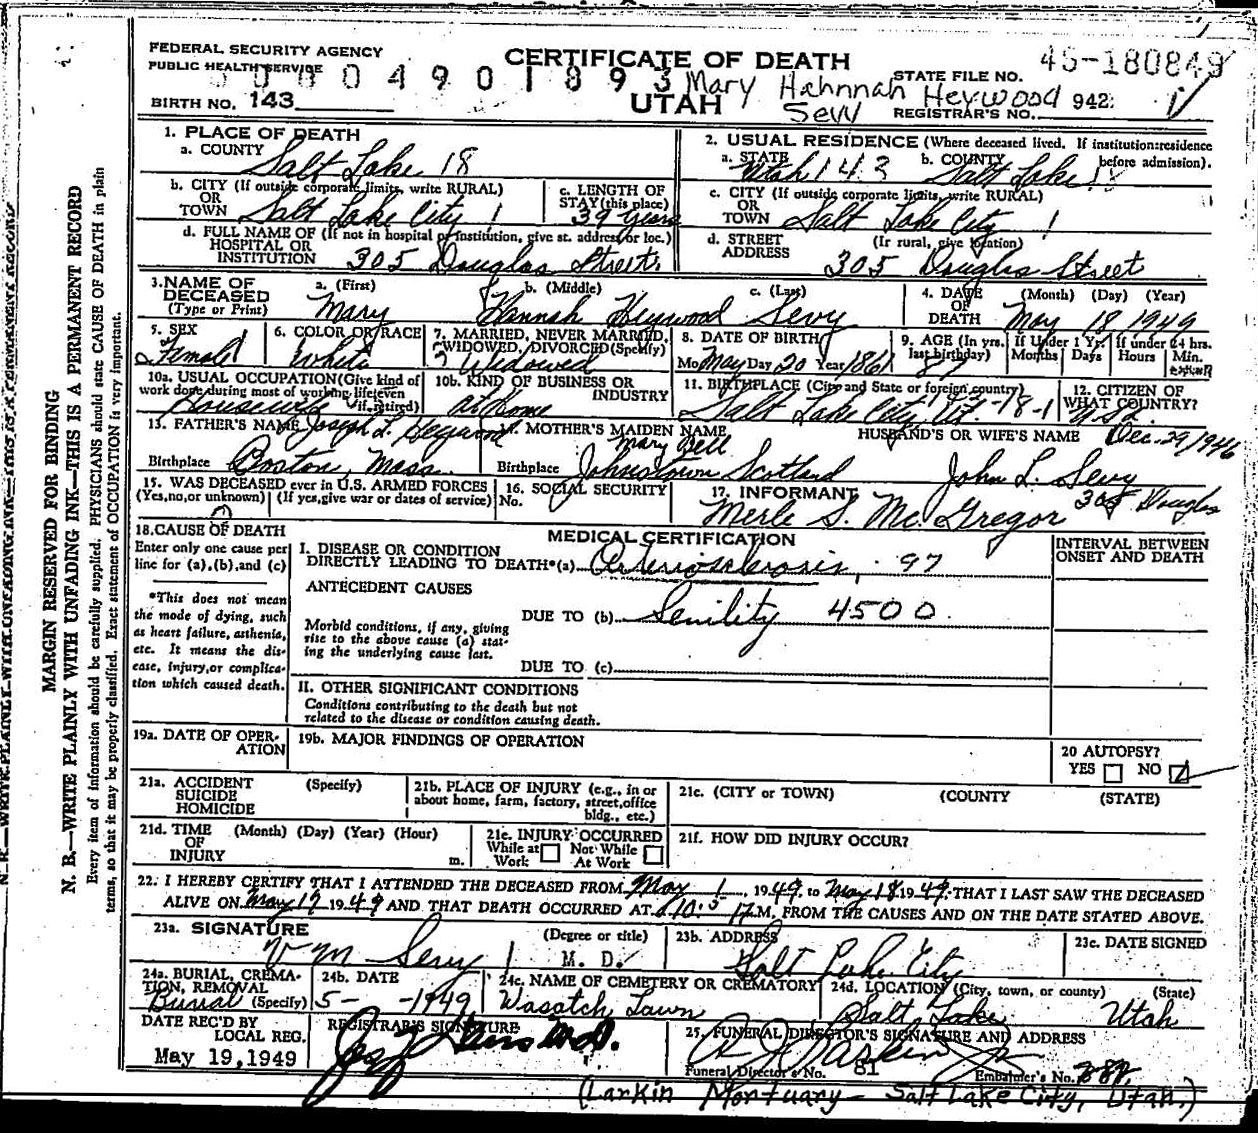 FEDERAL SECURITY AGENCY
PUBLIC HEALTH SERVICE
CERTIFICATE OF DEATH
STATE FILE NO. 45-180849
0004901893
Mary Hahnnah Heywood
BIRTH NO. 143
UTAH
Sevy
REGISTRAR'S NO. 942
1. PLACE OF DEATH
a. COUNTY Salt Lake 18
b. CITY (If outside corporate limits, write RURAL) OR TOWN Salt Lake City 1
c. LENGTH OF STAY (this place) 39 years
d. FULL NAME OF (If not in hospital or institution, give st. address or loc.) HOSPITAL OR INSTITUTION 305 Douglas Street
2. USUAL RESIDENCE (Where deceased lived. If institution:residence before admission).
a. STATE Utah 143 b. COUNTY Salt Lake 18
c. CITY (If outside corporate limits, write RURAL) OR TOWN Salt Lake City 1
d. STREET ADDRESS (Ir rural, give location) 305 Douglas Street
3. NAME OF DECEASED (Type or Print) a. (First) Mary b. (Middle) Hannah Heywood c. (Last) Sevy
4. DATE OF DEATH (Month) (Day) (Year) May 18 1949
5. SEX Female
6. COLOR OR RACE White
7. MARRIED, NEVER MARRIED, WIDOWED, DIVORCED (Specify) Widowed
8. DATE OF BIRTH Mo May Day 20 Year 1861
9. AGE (In yrs. last birthday) 87 If Under 1 Yr. Months Days If under 24 hrs. Hours Min.
10a. USUAL OCCUPATION (Give kind of work done during most of working life, even if retired) Housewife
10b. KIND OF BUSINESS OR INDUSTRY At Home
11. BIRTHPLACE (City and State or foreign country) Salt Lake City, Ut. 143-18-1
12. CITIZEN OF WHAT COUNTRY? USA
13. FATHER'S NAME Joseph L. Heywood
Birthplace Boston, Mass.
14. MOTHER'S MAIDEN NAME Mary Bell
Birthplace Johnstown Scotland
HUSBAND'S OR WIFE'S NAME Dec. 29/1946
John L. Sevy
15. WAS DECEASED ever in U.S. ARMED FORCES (Yes,no,or unknown) (If yes,give war or dates of service)
16. SOCIAL SECURITY No.
17. INFORMANT Merle S. McGregor 305 Douglas
18. CAUSE OF DEATH
Enter only one cause per line for (a),(b),and (c)
*This does not mean the mode of dying, such as heart failure, asthenia, etc. It means the disease, injury,or complication which caused death.
MEDICAL CERTIFICATION
I. DISEASE OR CONDITION DIRECTLY LEADING TO DEATH*(a) Arteriosclerosis, 97
ANTECEDENT CAUSES
DUE TO (b) Senility 4500
Morbid conditions, if any, giving rise to the above cause (a) stating the underlying cause last.
DUE TO (c)
II. OTHER SIGNIFICANT CONDITIONS
Conditions contributing to the death but not related to the disease or condition causing death.
INTERVAL BETWEEN ONSET AND DEATH
19a. DATE OF OPERATION
19b. MAJOR FINDINGS OF OPERATION
20 AUTOPSY? YES NO
21a. ACCIDENT SUICIDE HOMICIDE (Specify)
21b. PLACE OF INJURY (e.g., in or about home, farm, factory, street,office bldg., etc.)
21c. (CITY or TOWN) (COUNTY) (STATE)
21d. TIME OF INJURY (Month) (Day) (Year) (Hour) m.
21e. INJURY OCCURRED While at Work Not While At Work
21f. HOW DID INJURY OCCUR?
22. I HEREBY CERTIFY THAT I ATTENDED THE DECEASED FROM May 1, 1949, to May 18 1949; THAT I LAST SAW THE DECEASED
ALIVE ON May 17 1949 AND THAT DEATH OCCURRED AT M, FROM THE CAUSES AND ON THE DATE STATED ABOVE.
23a. SIGNATURE Sevy (Degree or title) M. D.
23b. ADDRESS Salt Lake City
23c. DATE SIGNED
24a. BURIAL, CREMATION, REMOVAL (Specify) Burial
24b. DATE 5- -1949
24c. NAME OF CEMETERY OR CREMATORY Wasatch Lawn
24d. LOCATION (City, town, or county) (State) Salt Lake Utah
DATE REC'D BY LOCAL REG. May 19,1949
REGISTRAR'S SIGNATURE M.D.
25. FUNERAL DIRECTOR'S SIGNATURE AND ADDRESS
Funeral Director's No. 81 Embalmer's No. 282
(Larkin Mortuary - Salt Lake City, Utah.)
MARGIN RESERVED FOR BINDING
N. B.—WRITE PLAINLY WITH UNFADING INK—THIS IS A PERMANENT RECORD
Every item of information should be carefully supplied. PHYSICIANS should state CAUSE OF DEATH in plain
terms, so that it may be properly classified. Exact statement of OCCUPATION is very important.